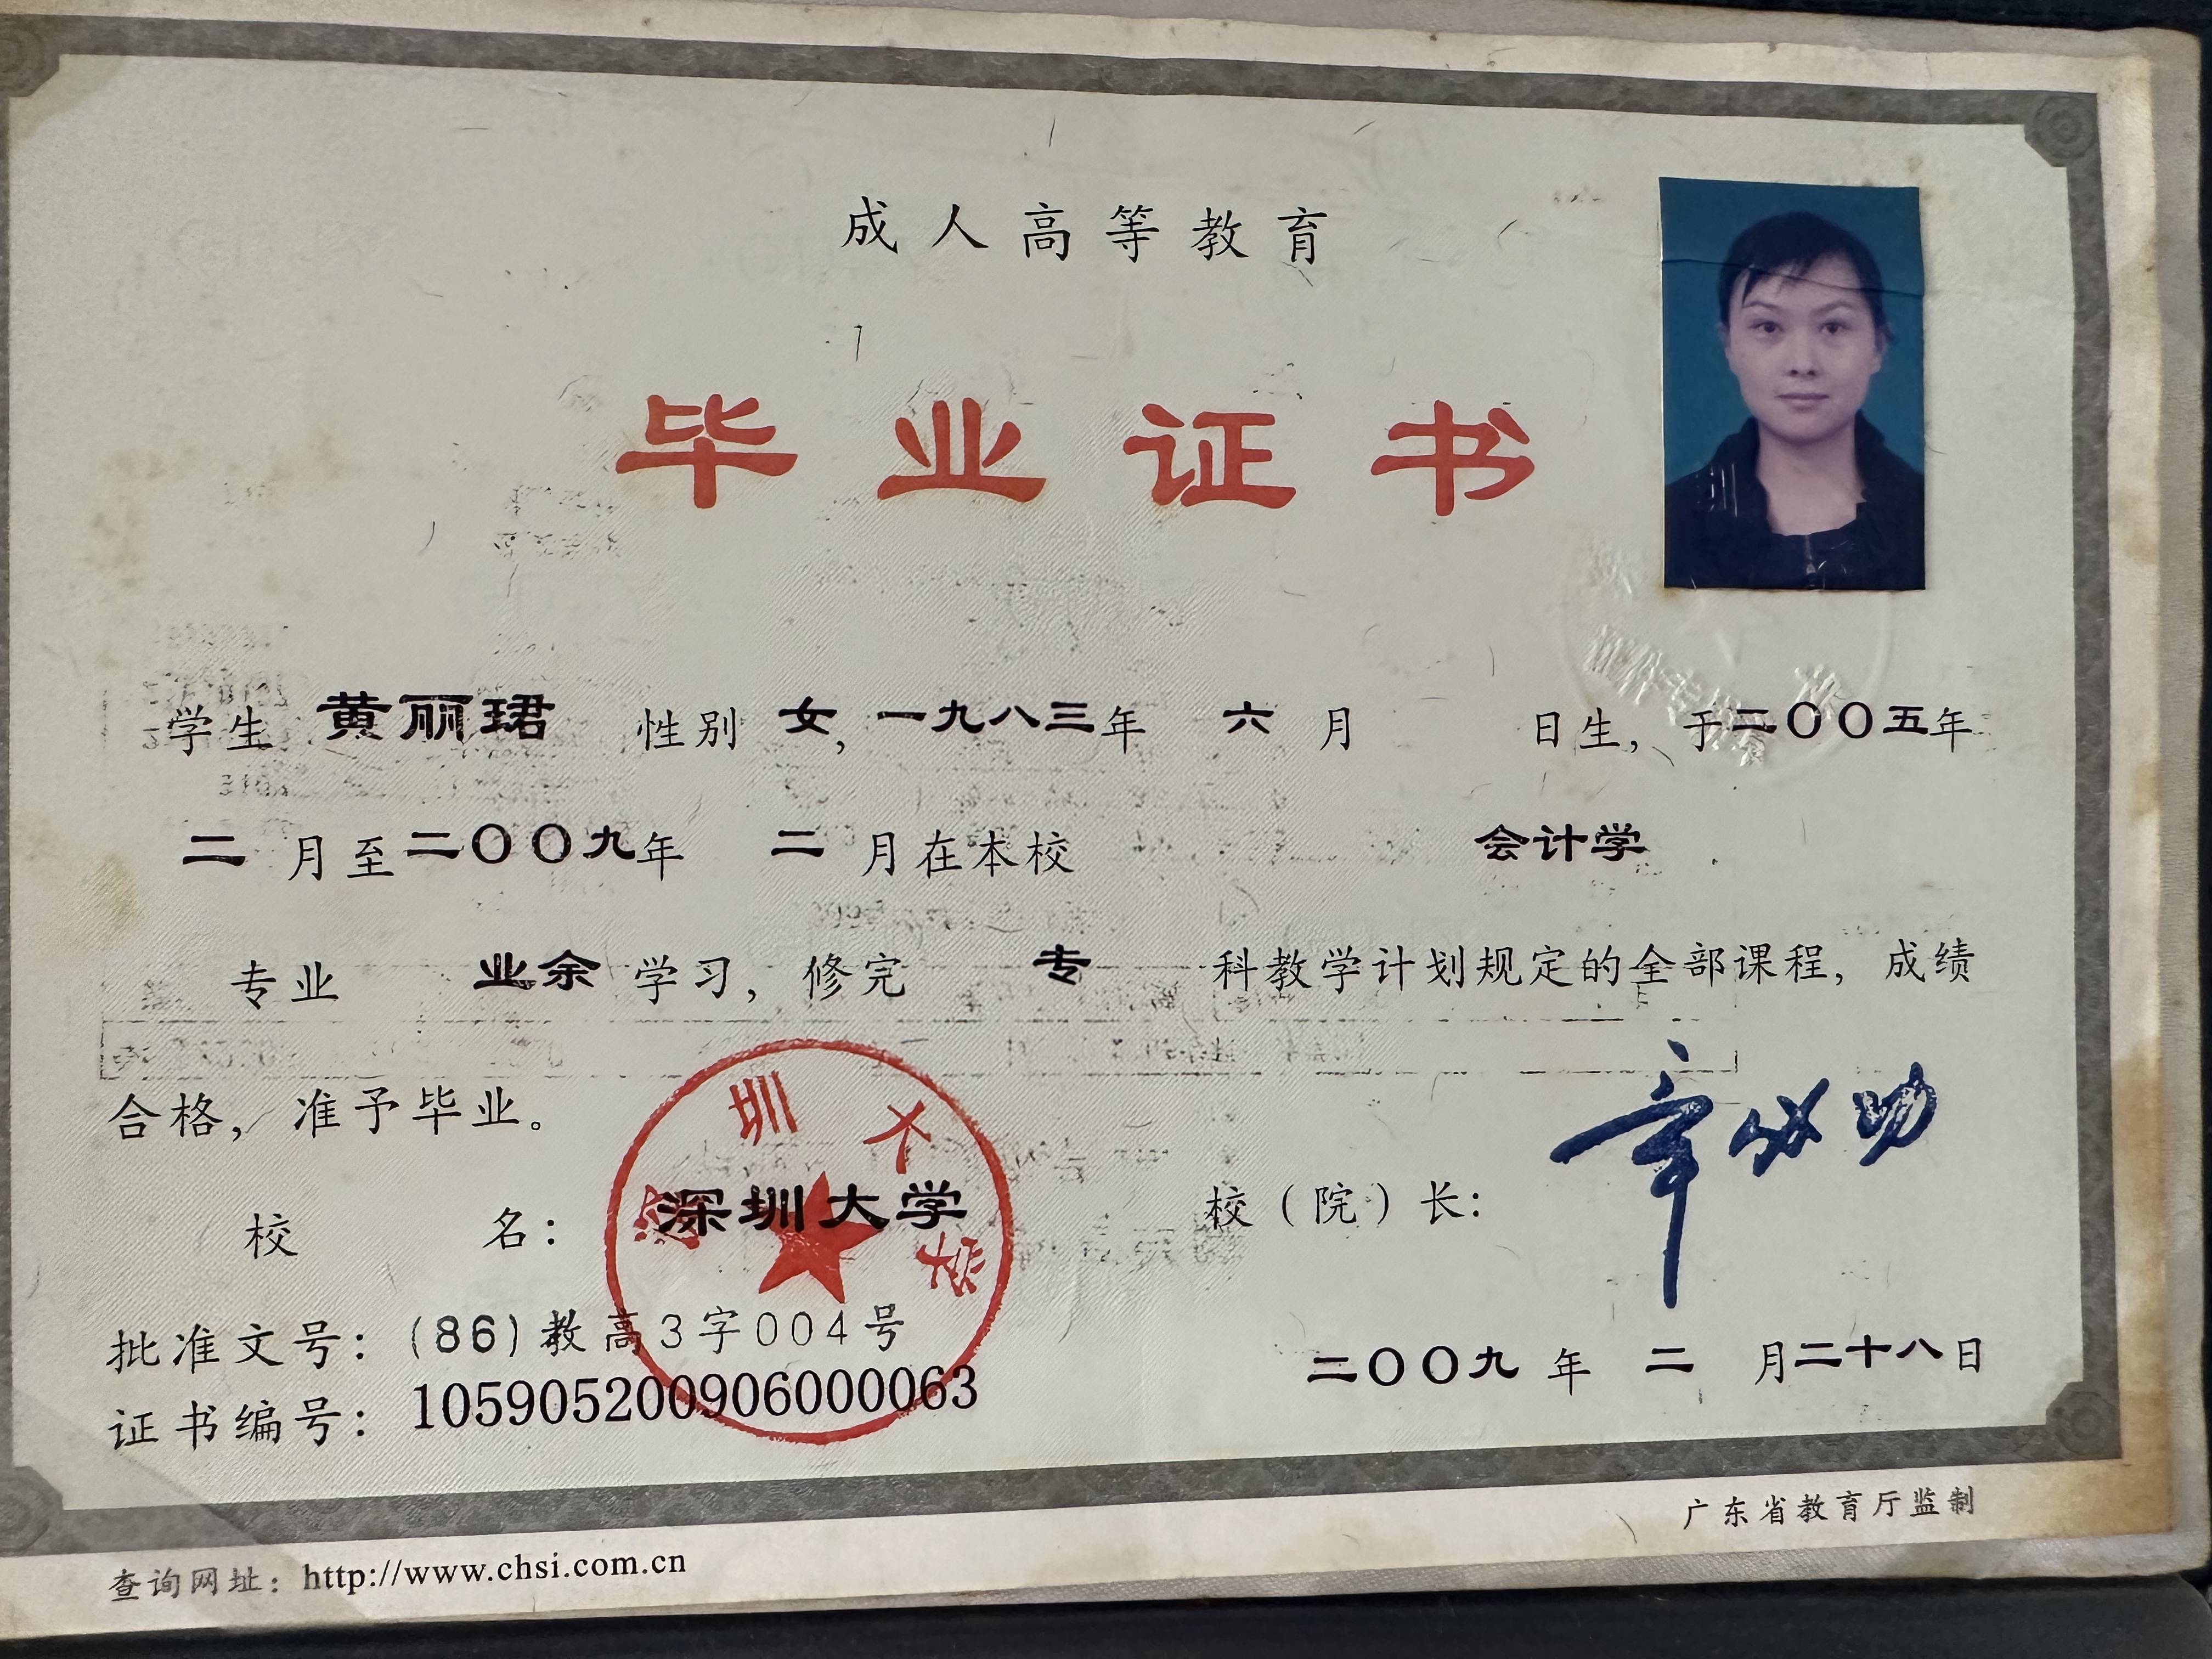 成人高等教育
毕业证书
学生 黄丽珺 性别 女，一九八三年 六 月 日生，于二〇〇五年
二 月至二〇〇九年 二 月在本校 会计学
专业 业余 学习，修完 专 科教学计划规定的全部课程，成绩
合格，准予毕业。
深圳大学
校 名：深圳大学 校（院）长：章必功
批准文号：(86)教高3字004号
二〇〇九 年 二 月二十八日
证书编号：105905200906000063
广东省教育厅监制
查询网址：http://www.chsi.com.cn